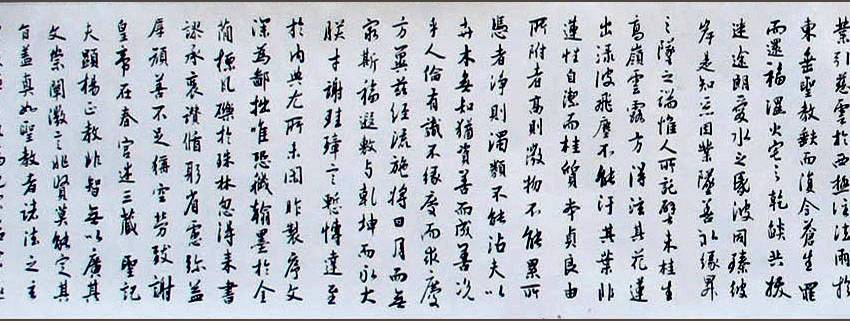 業引慈雲於西極注法雨於
東垂聖教缺而復全蒼生罪
而還福濕火宅之乾焰共拔
迷途朗愛水之昏波同臻彼
岸是知惡因業墜善以緣昇
々墜之端惟人所託譬夫桂生
高嶺雲露方得泫其花蓮
出淥波飛塵不能汙其葉非
蓮性自潔而桂質本貞良由
所附者高則微物不能累所
憑者淨則濁類不能沾夫以
卉木無知猶資善而成善況
乎人倫有識不緣慶而求慶
方冀茲經流施將日月而無
窮斯福遐敷與乾坤而永大
朕才謝珪璋言慙博達至
於內典尤所未閑昨製序文
深為鄙拙唯恐穢翰墨於金
簡標瓦礫於珠林忽得來書
謬承褒讚循躬省慮彌益
厚顏善不足稱空勞致謝
皇帝在春宮述三藏 聖記
夫顯揚正教非智無以廣其
文崇闡微言非賢莫能定其
旨蓋真如聖教者諸法之玄